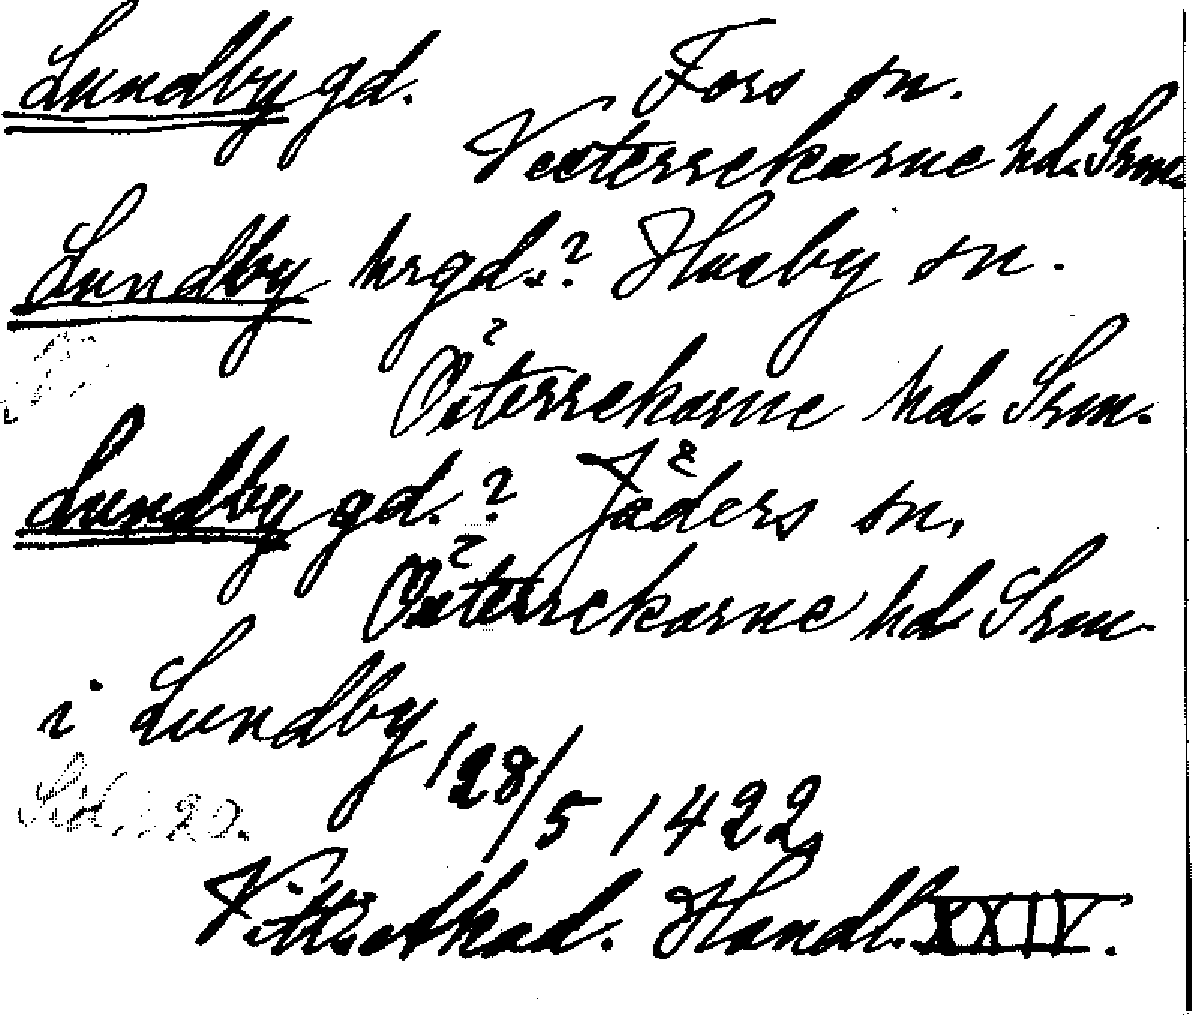 Lundby gd. Fors sn.
Vesterrekarne hd. Srm.
Lundby hrgd.? Husby sn.
Österrekarne hd. Srm.
Lundby gd.? Jäders sn.
Österrekarne hd. Srm.
i Lundby
(28/5 1422
Sid. 20.
Vitt. Akad. Handl. XXIV.